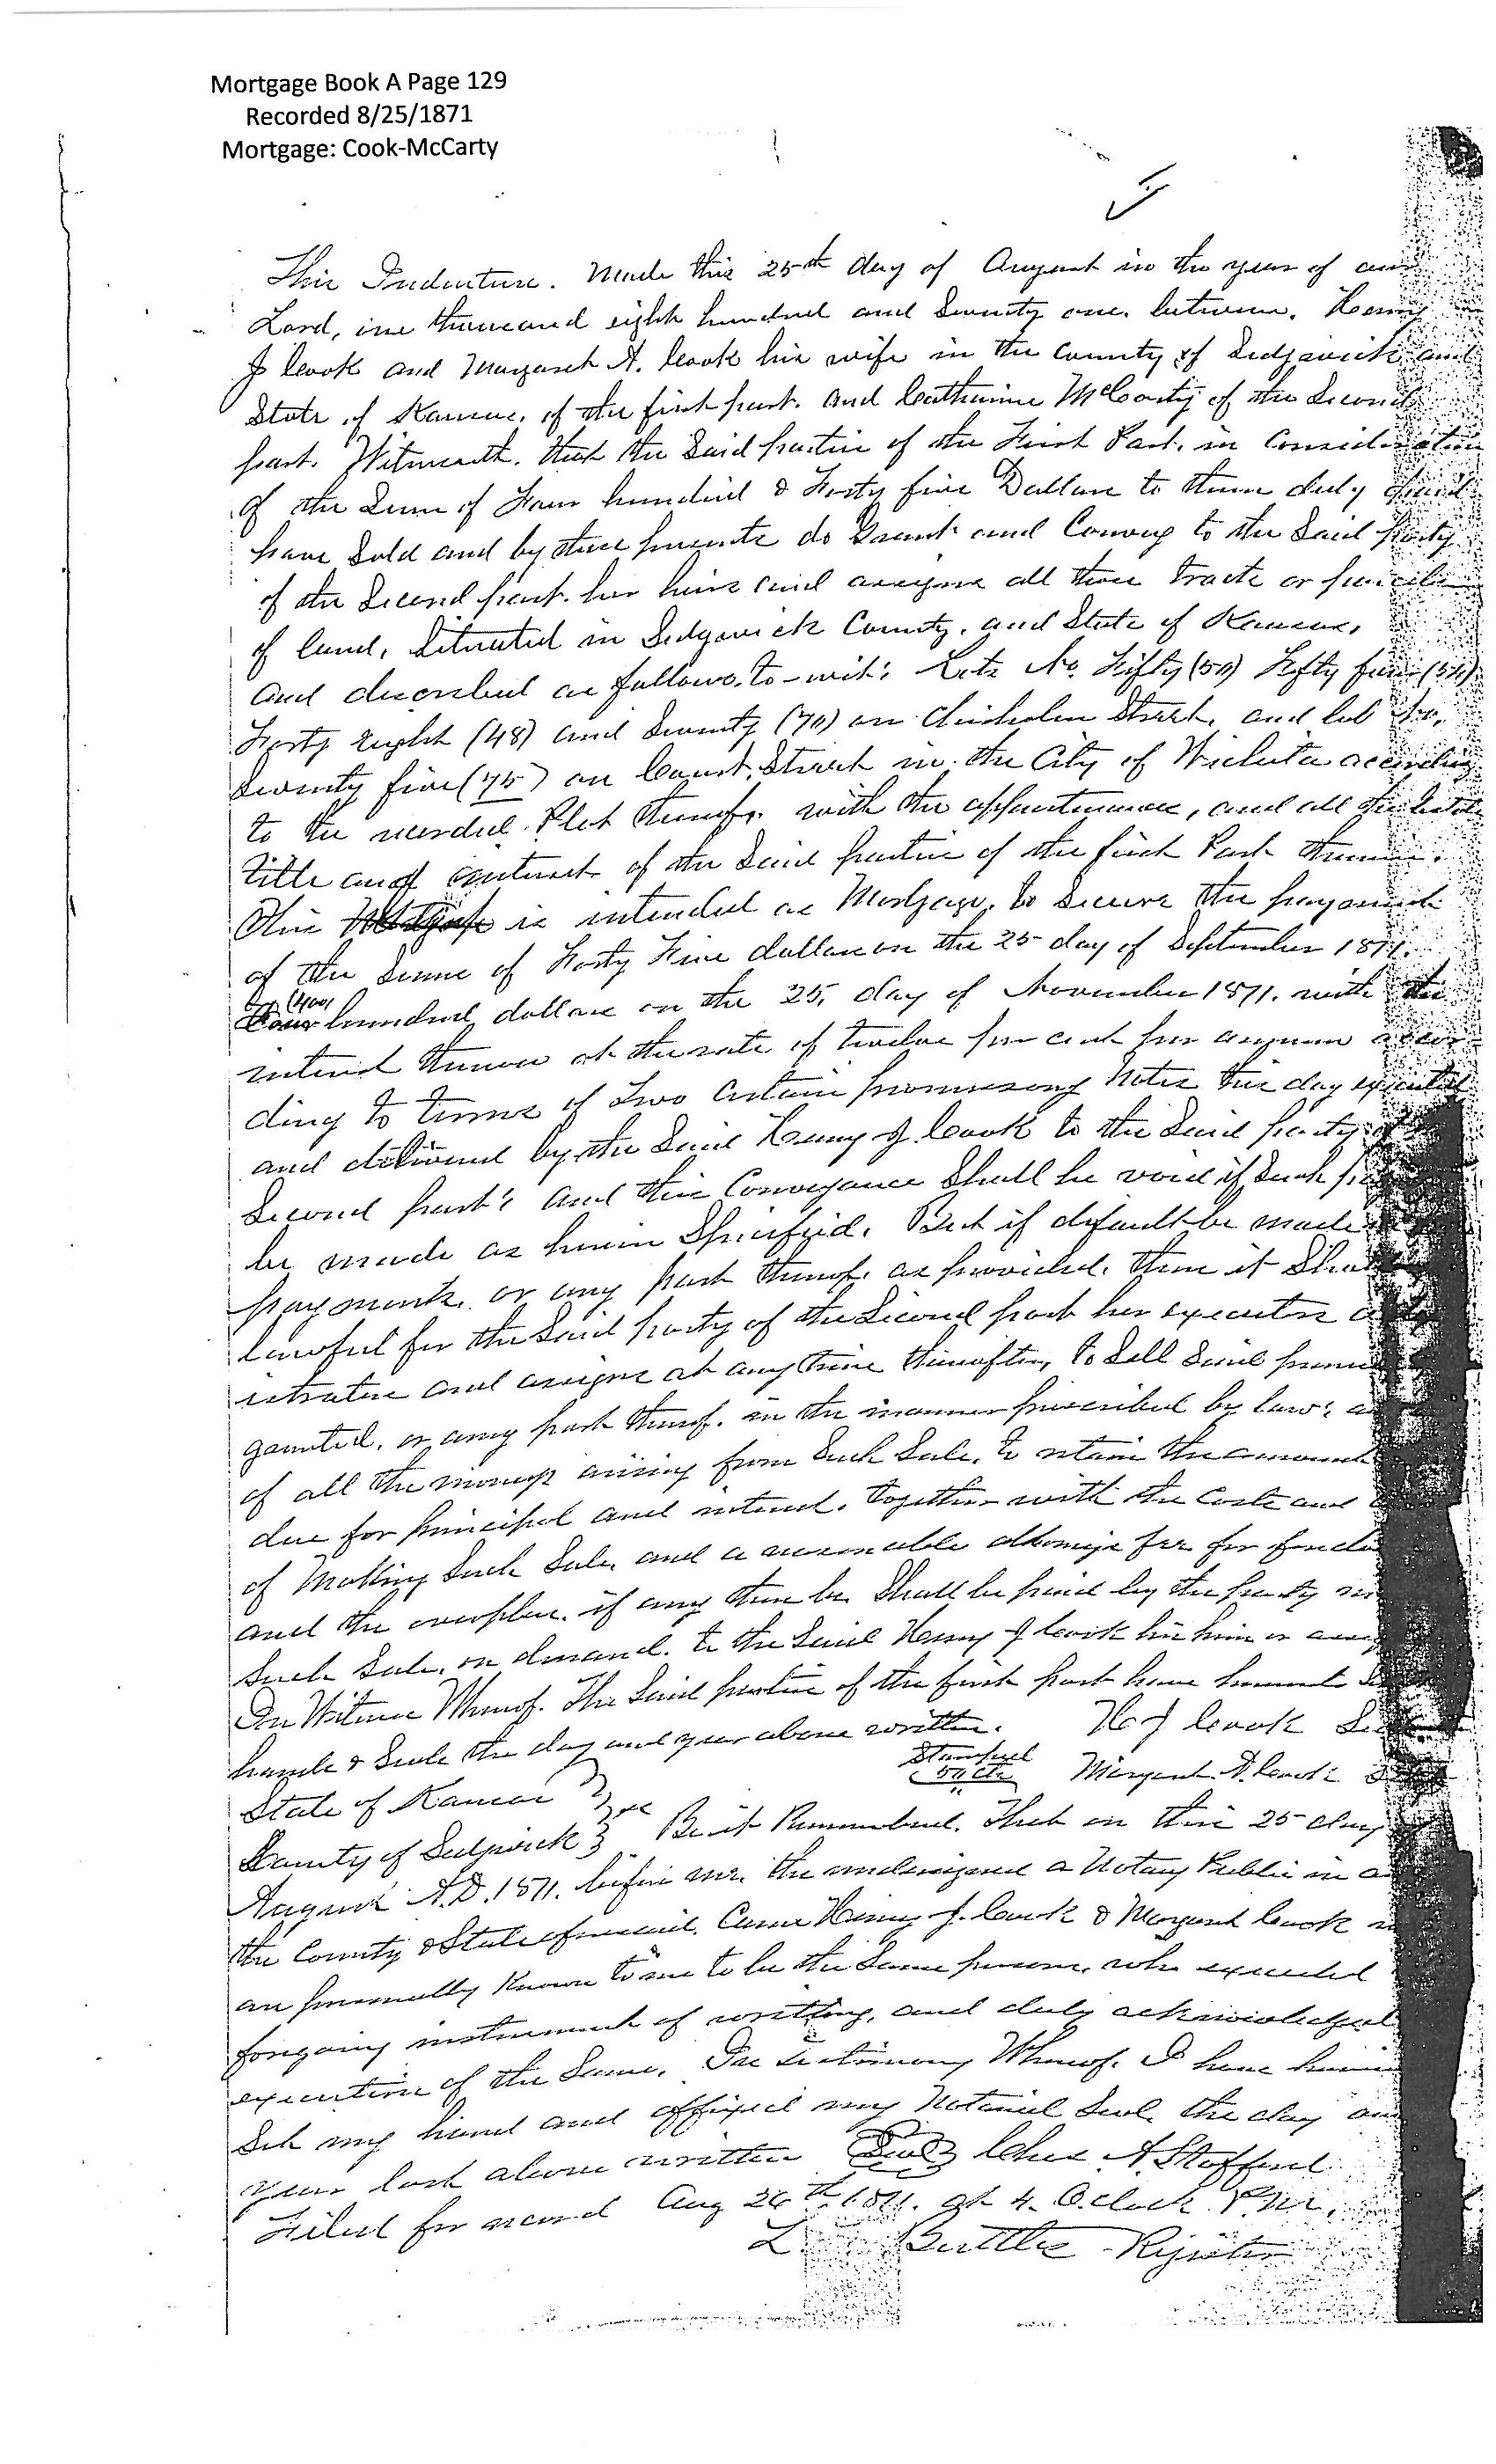 Mortgage Book A Page 129
Recorded 8/25/1871
Mortgage: Cook-McCarty
This Indenture. Made this 25th day of August in the year of our
Lord, one thousand eight hundred and Seventy one. between. Henry
J Cook and Margaret A. Cook his wife in the County of Sedgwick and
State of Kansas, of the first part. and Catharine McCarty of the Second
part. Witnesseth. that the Said parties of the First Part. in Consideration
of the Sum of Four hundred & Forty five Dollars to them duly paid
have Sold and by these presents do Grant and Convey to the Said party
of the Second part. her heirs and assigns all those tracts or parcels
of land. Situated in Sedgwick County. and State of Kansas,
and described as follows. to-wit: Lots No. Fifty (50) Fifty four (54)
Forty Eight (48) and Seventy (70) on Chisholm Street. and lot No.
Seventy five (75) on Court Street in the City of Wichita according
to the recorded Plat thereof. with the appurtenances, and all the Estate
title and interest of the Said parties of the first Part therein.
This is intended as Mortgage. to Secure the payment
of the Sum of Forty Five dollars on the 25 day of September 1871.
(400)
Four hundred dollars on the 25. day of November 1871. with the
interest thereon at the rate of twelve per cent per annum accor-
ding to terms of Two Certain promissory Notes this day executed
and delivered by the Said Henry J. Cook to the Said party of
Second part: and this Conveyance Shall be void if Such
be made as herein Specified. But if default be made
payment. or any part thereof. as provided. then it Shall
lawful for the Said party of the Second part her executors
istrators and assigns at any time thereafter, to Sell Said
granted. or any part thereof. in the manner prescribed by law: a
of all the moneys arising from Such Sale. to retain the amount
due for principal and interest. together with the Costs and
of Making Such Sale. and a reasonable attorneys fee for
and the overplus. if any there be. Shall be paid by the party
Such Sale. on demand. to the Said Henry J Cook his heirs or
In Witness Whereof. The Said parties of the first part have hereunto
hands & Seals the day and year above written. H J Cook Seal
Stamped
50 cts
Margaret A. Cook
State of Kansas
County of Sedgwick } Be it Remembered. That on this 25 day
August A.D. 1871. before me. the undersigned a Notary Public in
the County & State aforesaid. Came Henry J. Cook & Margaret Cook
are personally Known to me to be the Same persons. who executed
foregoing instrument of writing, and duly acknowledged
execution of the Same. In testimony Whereof. I have
Set my hand and affixed my Notarial Seal. the day
year last above written Seal Chas A. Stafford
Filed for record Aug 26th 1871. at 4. O.clock P.M.
L Buttles Register